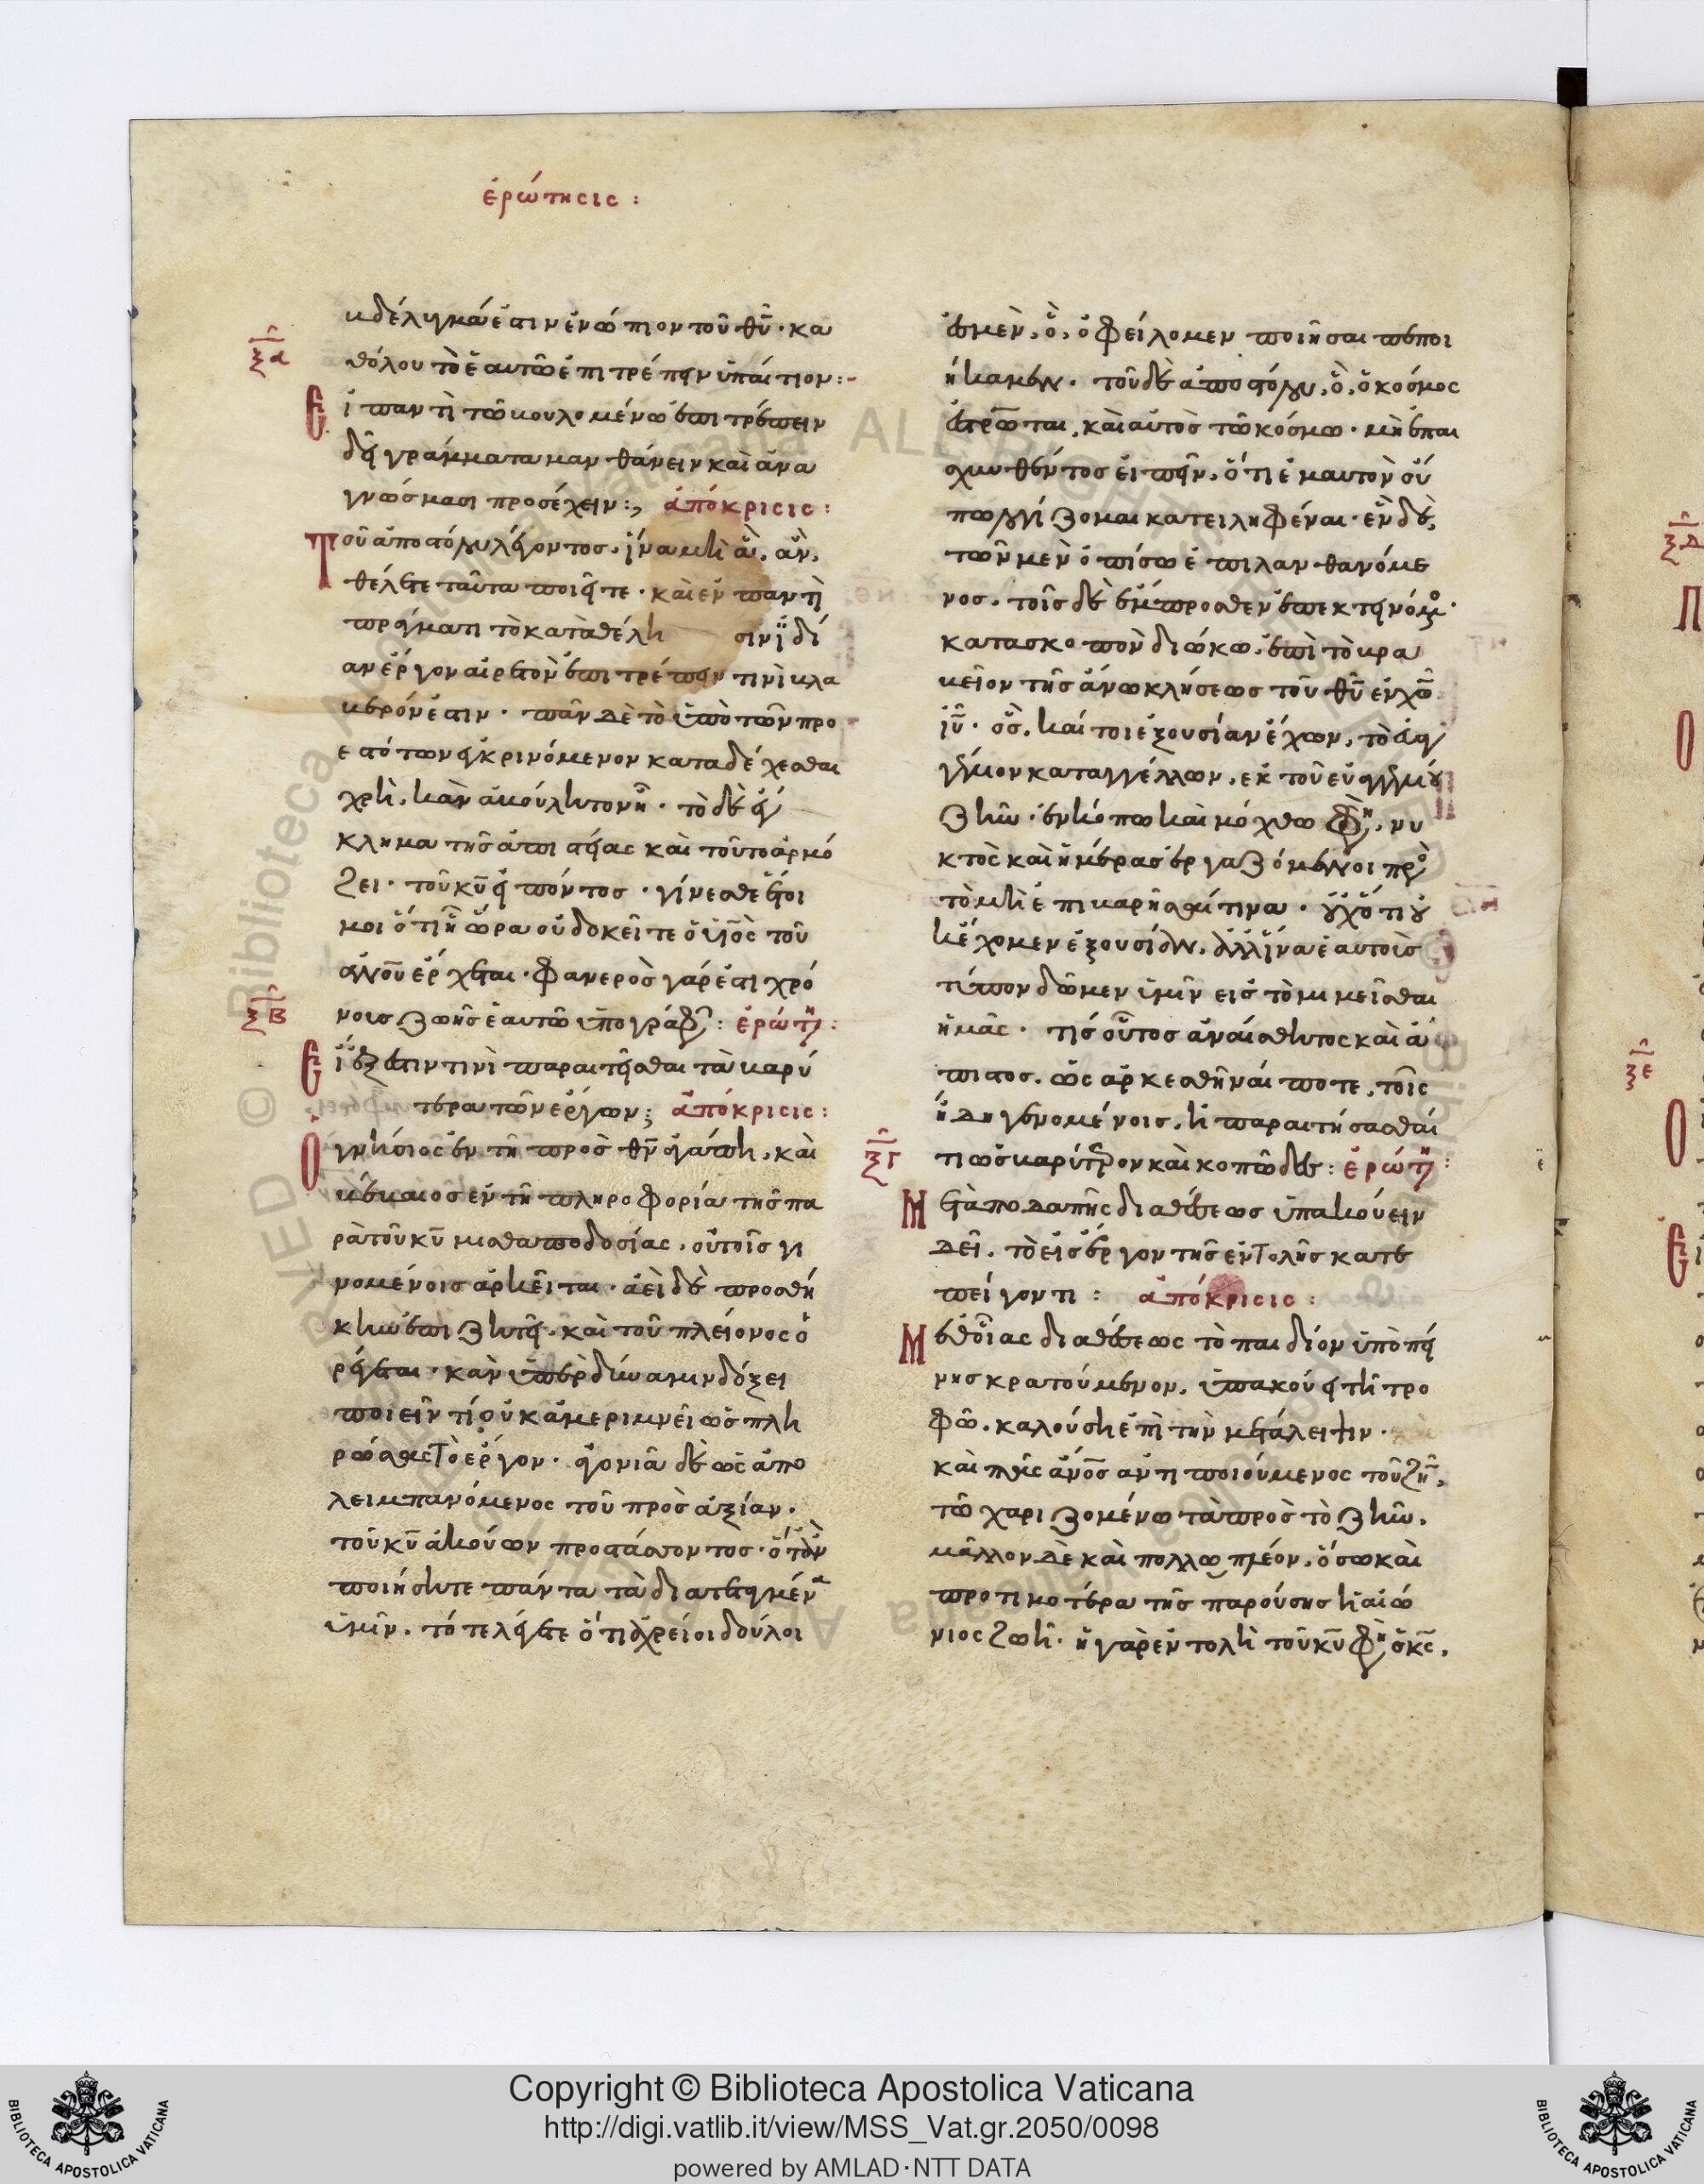 ἐρώτησις :
βδέλυγμά ἐστιν ἐνώπιον τοῦ θ̅υ̅ · κα
ξα
θόλου τὸ ἑαυτῶ ἐπιτρέπειν ὑπαίτιον :-
Εἰ παντὶ τῶ βουλομένω ἐπιτρέπειν
δεῖ γράμματα μανθάνειν καὶ ἀνα
γνώσμασι προσέχειν :, ἀπόκρισις :
Τοῦ ἀποστόλου λέγοντος · ἵνα μὴ ἃ, ἂν,
θέλετε ταῦτα ποιεῖτε · καὶ ἐν παντὶ
πράγματι τὸ κατὰ θέλη σιν ἰδί
αν ἔργον αἱρετὸν ἐπιτρέπειν τινὶ βλα
βερόν ἐστιν · πᾶν δὲ τὸ ὑπὸ τῶν προ
εστότων ἐγκρινόμενον καταδέχεσθαι
χρὴ, κἂν ἀβούλητον ἦ · τὸ δὲ ἔγ
κλημα τῆς ἀπιστίας καὶ τοῦτο ἁρμό
ζει · τοῦ κ̅υ̅ εἰπόντος · γίνεσθε ἕτοι
μοι ὅτι ἧ ὥρα οὐ δοκεῖτε ὁ υἱὸς τοῦ
ἀνου ἔρχεται · φανερὸς γάρ ἐστι χρό
ξβ
νους ζωῆς ἑαυτῶ ὑπογράφ : ἐρώτη :
Εἰ ἔξεστιν τινὶ παραιτεῖσθαι τὰ βαρύ
τερα τῶν ἔργων ; ἀπόκρισις :
Ὁ γνήσιος ἐν τῆ πρὸς θ̅ν̅ ἀγάπη, καὶ
βέβαιος ἐν τῆ πληροφορία τῆς πα
ρὰ τοῦ κ̅υ̅ μισθαποδοσίας, οὐ τοῖς γι
νομένοις ἀρκεῖται · ἀεὶ δὲ προσθή
κην ἐπιζητεῖ · καὶ τοῦ πλείονος ὀ
ρέγεται · κἂν ὑπὲρ δύναμιν δόξει
ποιεῖν τί, οὐκ ἀμεριμνεῖ ὡς πλη
ρώσας τὸ ἔργον · ἀγωνιᾶ δὲ ὡς ἀπο
λειμπανόμενος τοῦ πρὸς ἀξίαν ·
τοῦ κ̅υ̅ ἀκούων προστάσσοντος · ὅταν
ποιήσητε πάντα τὰ διατεταγμένα
ὑμῖν · τότε λέγετε ὅτι ἀχρεῖοι δοῦλοι
ἐσμὲν, ὃ, ὀφείλομεν ποιῆσαι πεποι
ήκαμεν · τοῦ δὲ ἀποστόλου, ὧ, ὁ κόσμος
ἐσταύρωται, καὶ αὐτὸς τῶ κόσμω · μὴ ἐπαι
σχυνθέντος εἰπεῖν, ὅτι ἐμαυτὸν οὔ
πω λογίζομαι κατειληφέναι · ἓν δὲ,
τῶν μὲν ὀπίσω ἐπιλανθανόμε
νος, τοῖς δὲ ἔμπροσθεν ἐπεκτεινόμ ·
κατασκοπὸν διώκω, ἐπὶ τὸ βρα
βεῖον τῆς ἄνω κλήσεως τοῦ θ̅υ̅ ἐν χ̅ω̅
ἰ̅υ̅ · ὃς, καίτοι ἐξουσίαν ἔχων, τὸ εὐαγ
γέλιον καταγγέλλων, ἐκ τοῦ εὐαγγελίου
ζῆν · ἐν κόπω καὶ μόχθω φη, νυ
κτὸς καὶ ἡμέρας ἐργαζόμενοι πρὸ
τὸ μὴ ἐπιβαρῆσαί τινα · οὐχ ὅτι οὐ
κ ἔχομεν ἐξουσίαν, ἀλλ' ἵνα ἑαυτοὺς
τύπον δῶμεν ὑμῖν εἰς τὸ μιμεῖσθαι
ἡμᾶς · τίς οὕτως ἀναίσθητος καὶ ἄ
πιστος, ὡς ἀρκεσθῆναί ποτε, τοῖς
ἤδη γενομένοις, ἢ παραιτήσασθαί
ξγ
τι ὡς βαρύτερον καὶ κοπῶδες : ἐρώτη :
Μετὰ ποδαπῆς διαθέσεως ὑπακούειν
δεῖ, τὸ εἰς ἔργον τῆς ἐντολῆς κατε
πείγοντι : ἀπόκρισις :
Μεθ' οἵας διαθέσεως τὸ παιδίον ὑπὸ πεί
νης κρατούμενον, ὑπακούει τῆ τρο
φῶ, καλούση ἐπὶ τὴν μετάληψιν ·
καὶ πᾶς ἄνος ἀντιποιούμενος τοῦ ζῆν,
τῶ χαριζομένω τὰ πρὸς τὸ ζῆν,
μᾶλλον δὲ καὶ πολλῶ πλέον, ὅσω καὶ
προτιμοτέρα τῆς παρούσης ἡ αἰώ
νιος ζωὴ · ἡ γὰρ ἐντολὴ τοῦ κ̅υ̅ φη ὁ κ̅ς̅,
Copyright © Biblioteca Apostolica Vaticana
http://digi.vatlib.it/view/MSS_Vat.gr.2050/0098
powered by AMLAD·NTT DATA
BIBLIOTECA APOSTOLICA VATICANA
BIBLIOTECA APOSTOLICA VATICANA